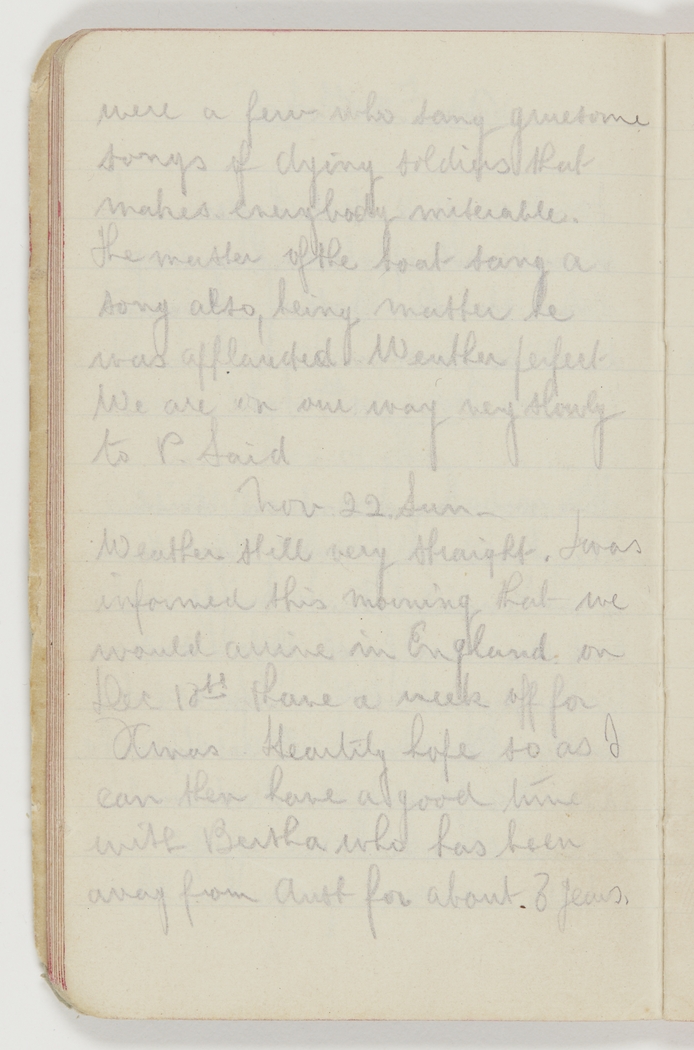 were a few who sang gruesome
songs of dying soldiers that
makes everybody miserable.
The master of the boat sang a
song also, being master he
was applauded. Weather perfect
We are on our way very slowly
to P. Said
Nov 22 Sun-
Weather still very straight. I was
informed this morning that we
would arrive in England. on
Dec 12th & have a week off for
Xmas. Heartily hope so as I
can then have a good time
with Bertha who has been
away from Aust for about 3 years.